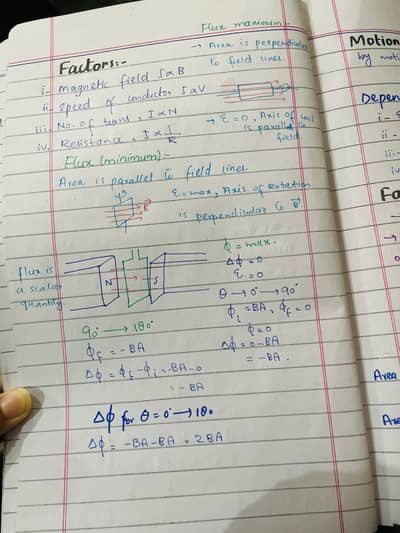 Flux maximum:-
→ Area is perpendicular
to field lines.
Factors:-
i- Magnetic field I∝B
ii. Speed of conductor I∝V
iii. No. of turns, I∝N
iv. Resistance, I∝1/R
→ ε=0, Axis of coil
is parallel to
field
Flux (minimum):-
Area is parallel to field lines.
ε=max, Axis of Rotation
is perpendicular to B⃗.
flux is
a scalar
quantity.
N
S
ϕ = max.
Δϕ = 0
ε = 0
θ → 0° → 90°
ϕi = BA, ϕf = 0
ϕ = 0
Δϕ = 0-BA
= -BA.
90° → 180°
ϕf = -BA
Δϕ = ϕf - ϕi = -BA-0
= -BA
Δϕ for θ = 0° → 180
Δϕ = -BA-BA = 2BA
Motion
by moti
Depen
i- S
ii-
iii-
iv
Fa
→
→
Area
Are